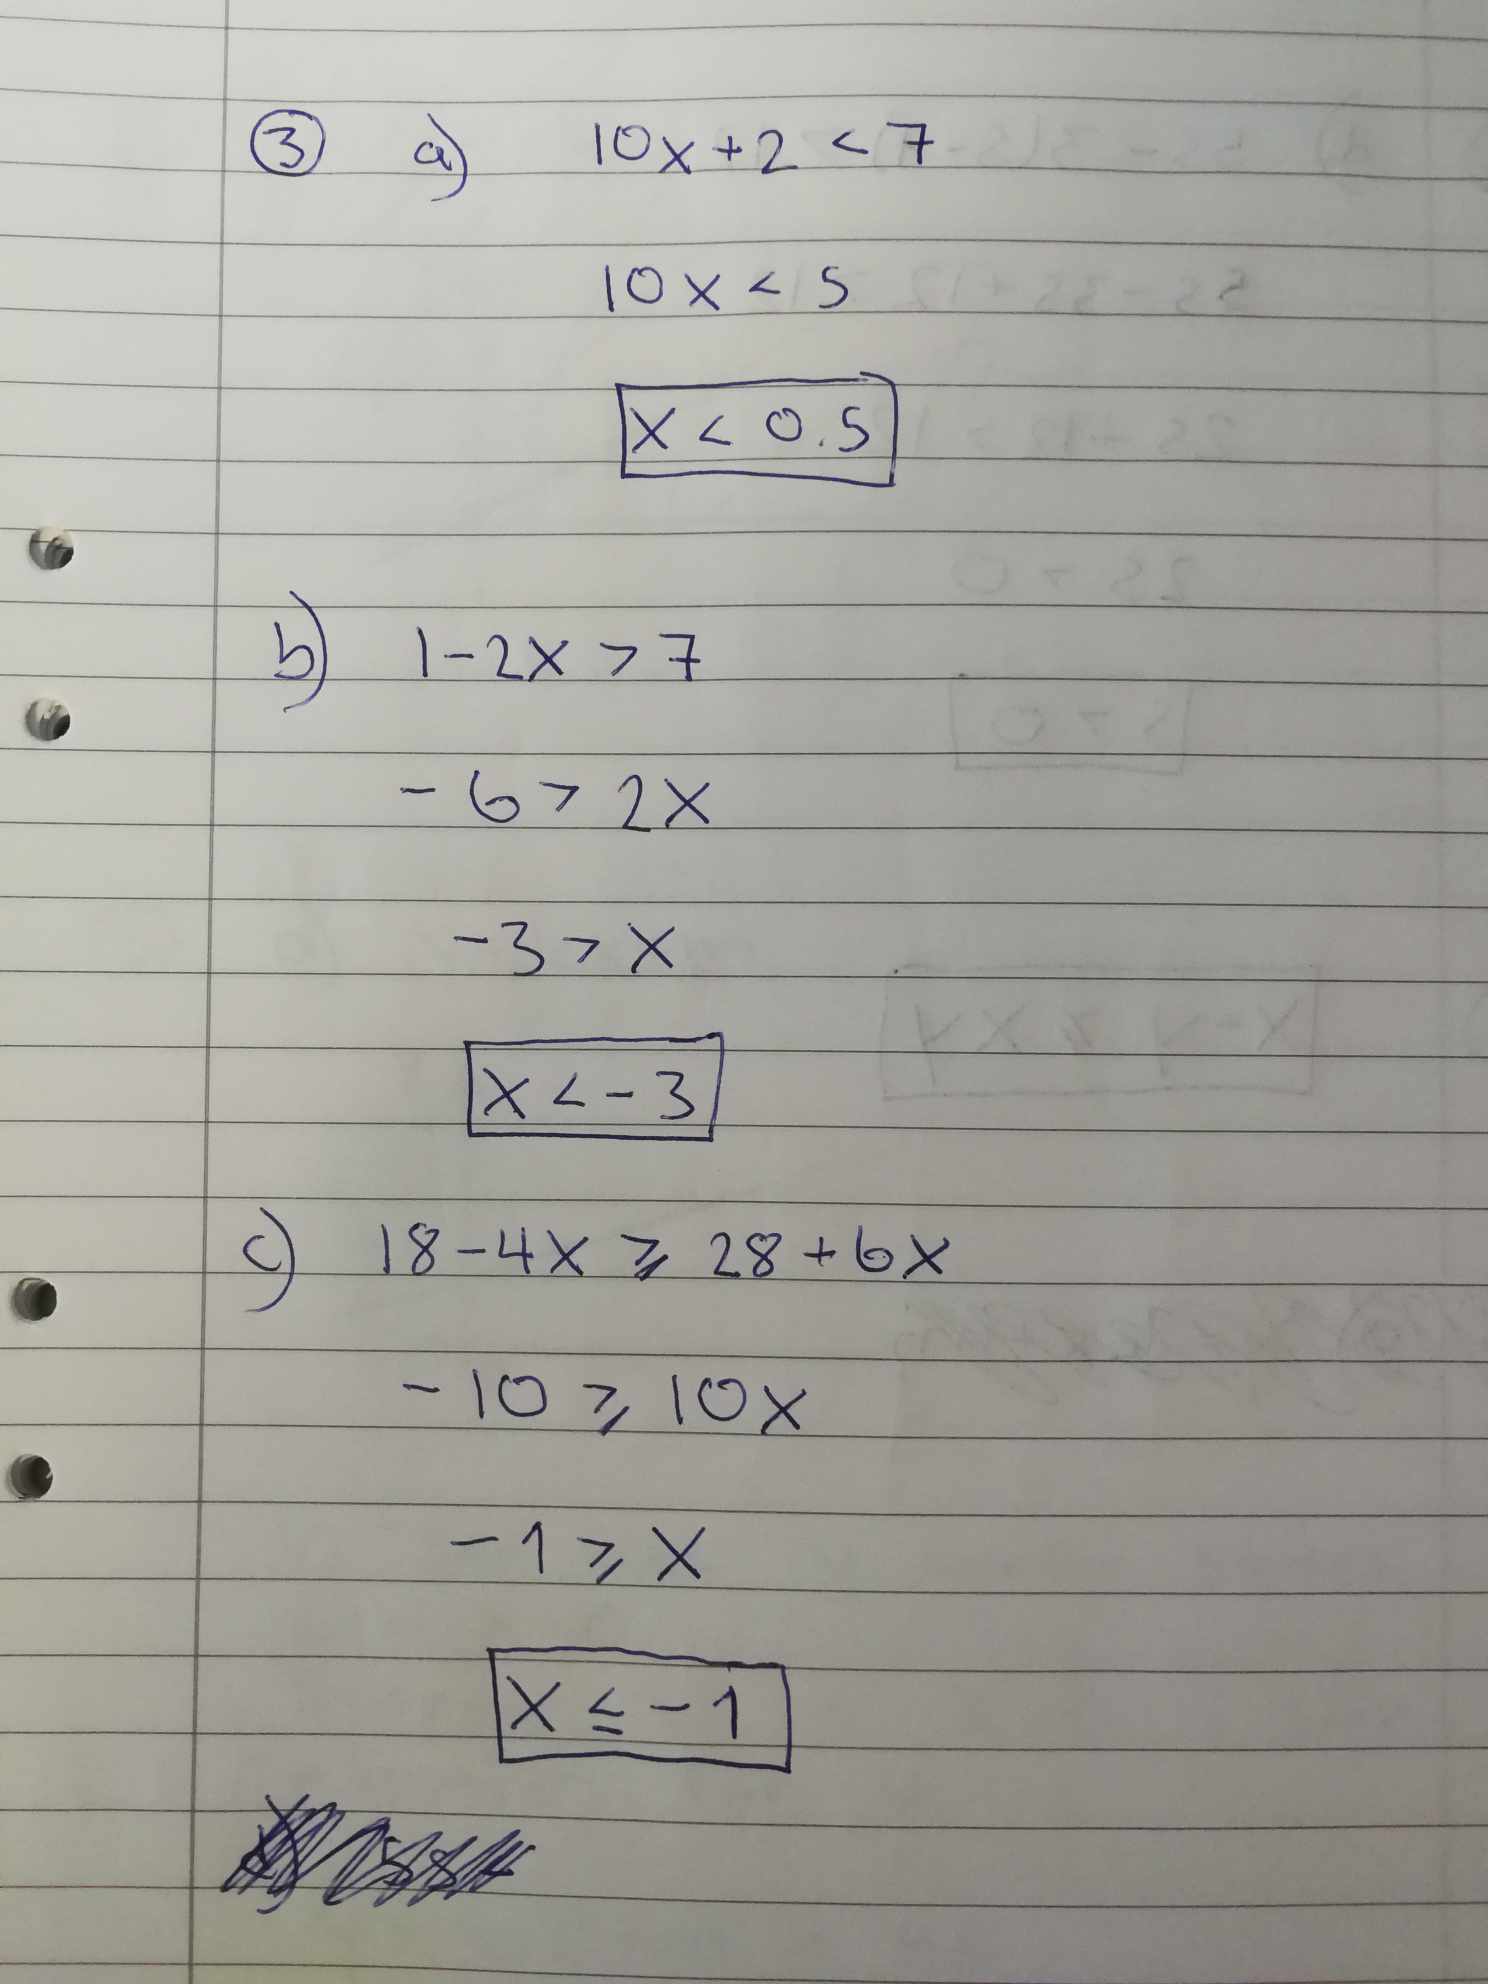 ③ a) 10x + 2 < 7
10x < 5
x < 0.5
b) 1 - 2x > 7
- 6 > 2x
- 3 > x
x < - 3
c) 18 - 4x ⩾ 28 + 6x
- 10 ⩾ 10x
- 1 ⩾ x
x ≤ - 1